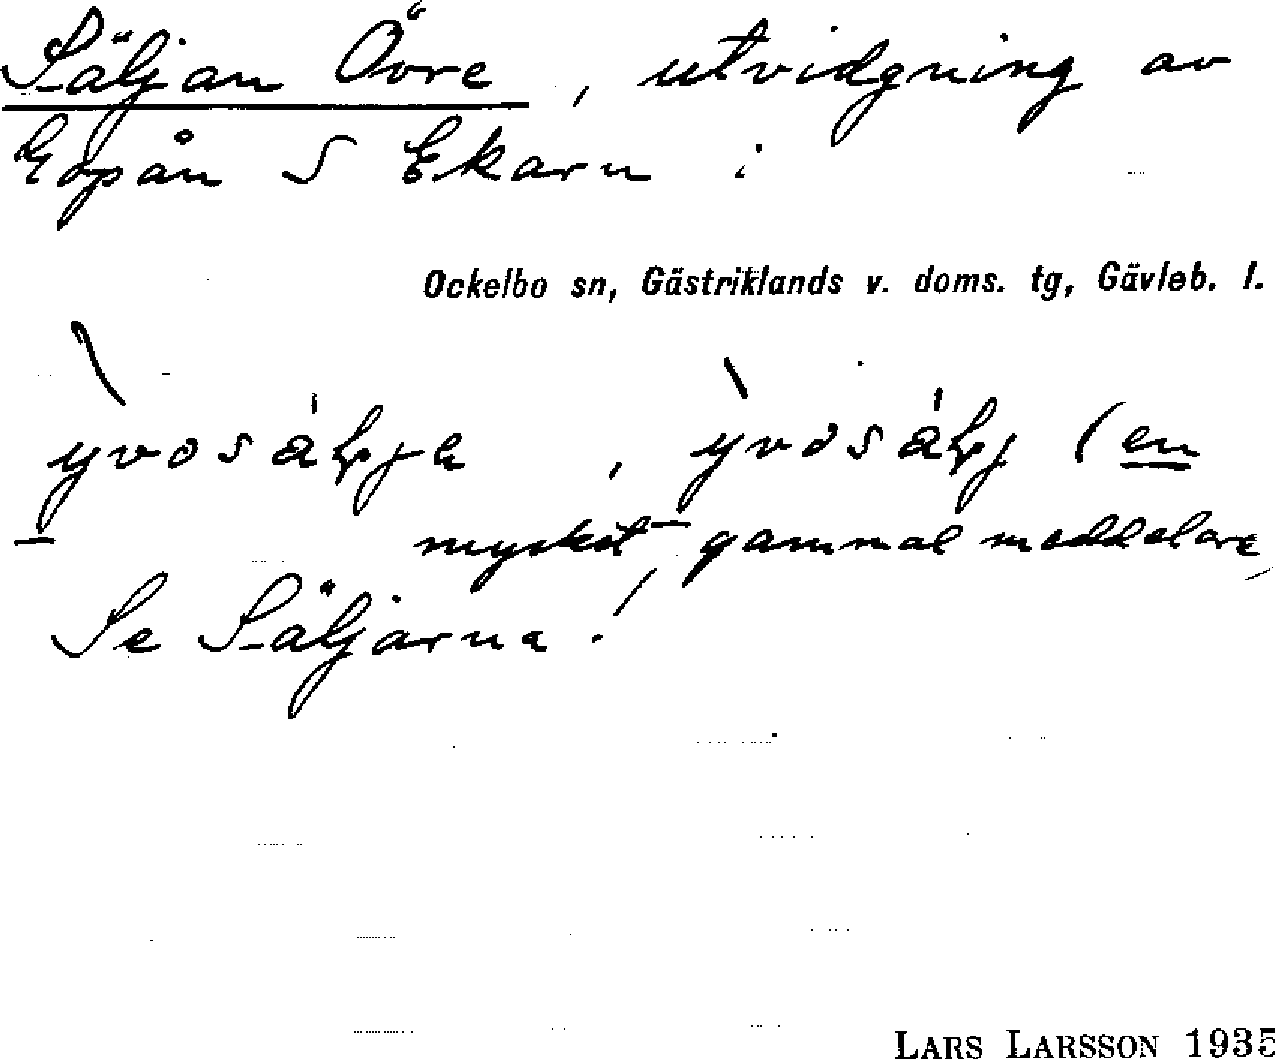 Säljan Övre, utvidgning av
Gopån S Ekarn i
Ockelbo sn, Gästriklands v. doms. tg, Gävleb. l.
(en
mycket gammal meddelare
Se Säljarna!
LARS LARSSON 1935